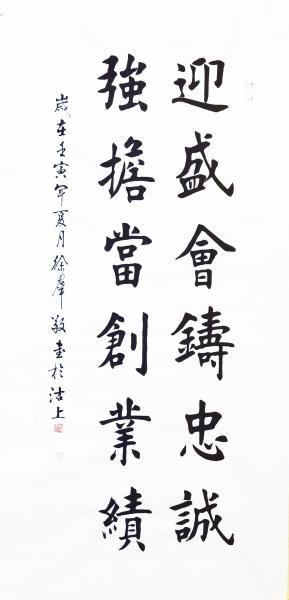 迎盛會鑄忠誠
強擔當創業績
歲在壬寅年夏月徐群敬書於沽上